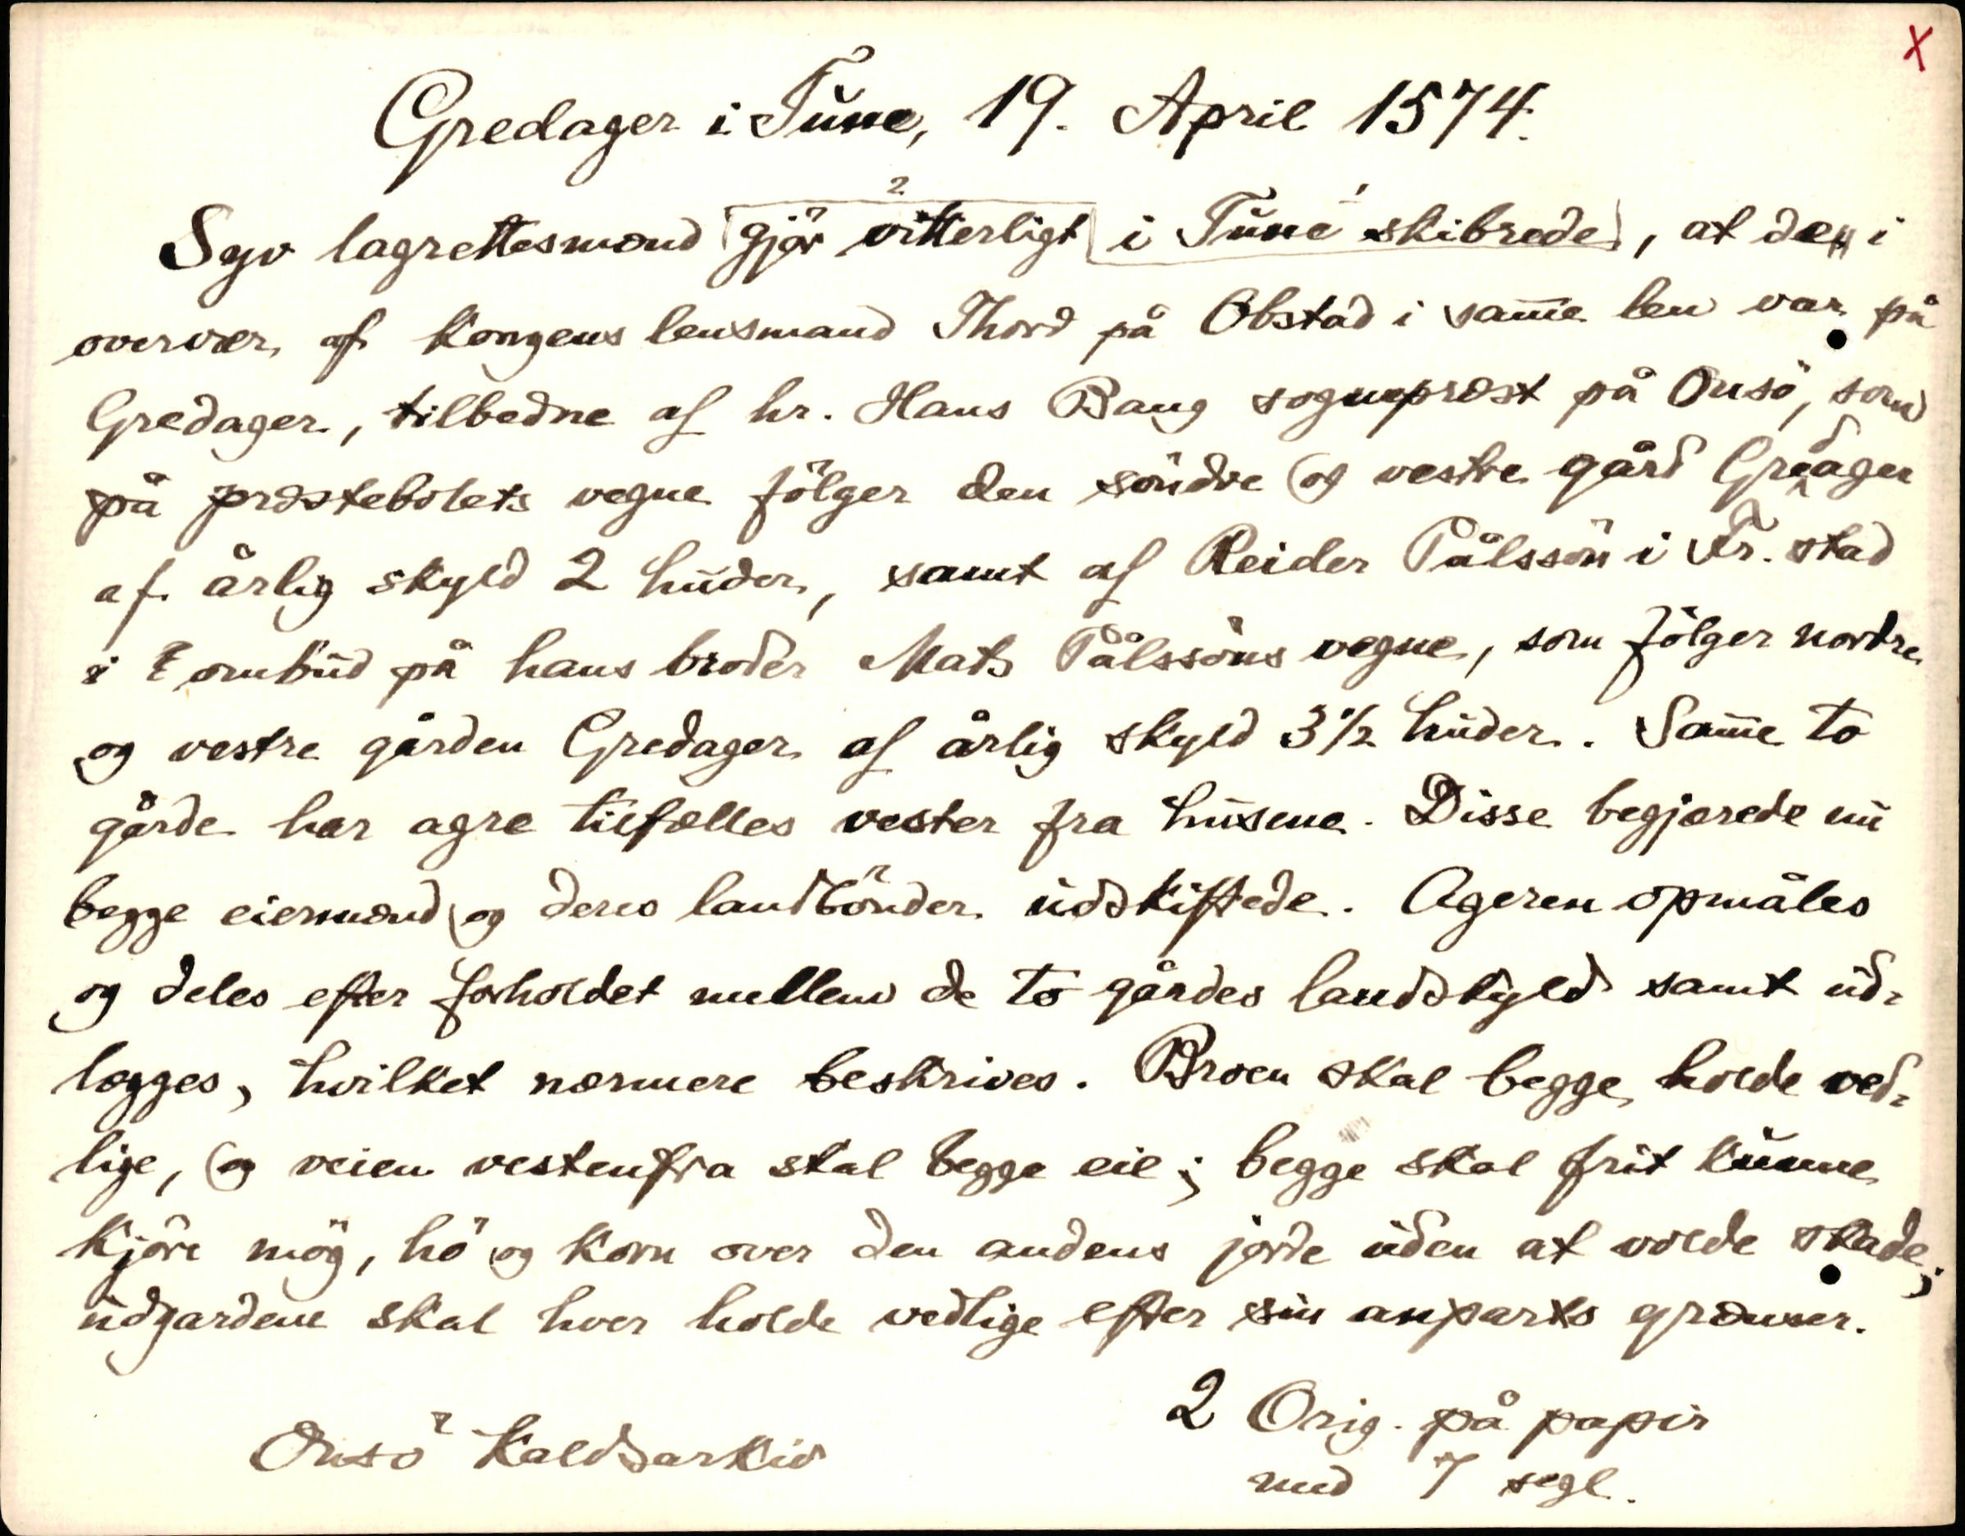 x
Gredager i Tune, 19. April 1574.
2 1
Syv lagrettesmænd gjör vitterligt i Tune skibrede, at de i
overvær af kongens lensmand Thord på Obstad i sam̅e len var på
Gredager, tilbedne af hr. Hans Bang sognepræst på Onsö, som
på præstebolets vegne fölger den söndre og vestre gård Gredager
af årlig skyld 2 huder, samt af Reider Pålssön i Fr.stad
i ombud på hans broder Mats Pålssöns vegne, som fölger nordre
og vestre gården Gredager af årlig skyld 3 1/2 huder. Sam̅e to
gårde har agre tilfælles vester fra husene. Disse begjærede nu
begge eiermænd og deres landbönder udskiftede. Ageren opmåles
og deles efter forholdet mellem de to gårdes landskyld samt ud-
lægges, hvilket nærmere beskrives. Broen skal begge holde ved-
lige, og veien vestenfra skal begge eie; begge skal frit kunne
kjöre mög, hö og korn over den andens jorde uden at volde skade;
udgardene skal hver holde vedlige efter sin anparts grænser.
2 Orig. på papir
med 7 segl.
Onsö Kaldsarkiv